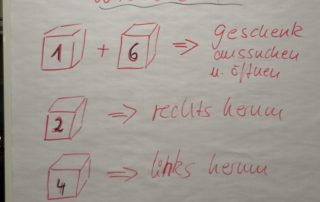 1 + 6 ⇒ geschenk
aussuchen
u. öffnen
2 ⇒ rechts herum
4 ⇒ links herum